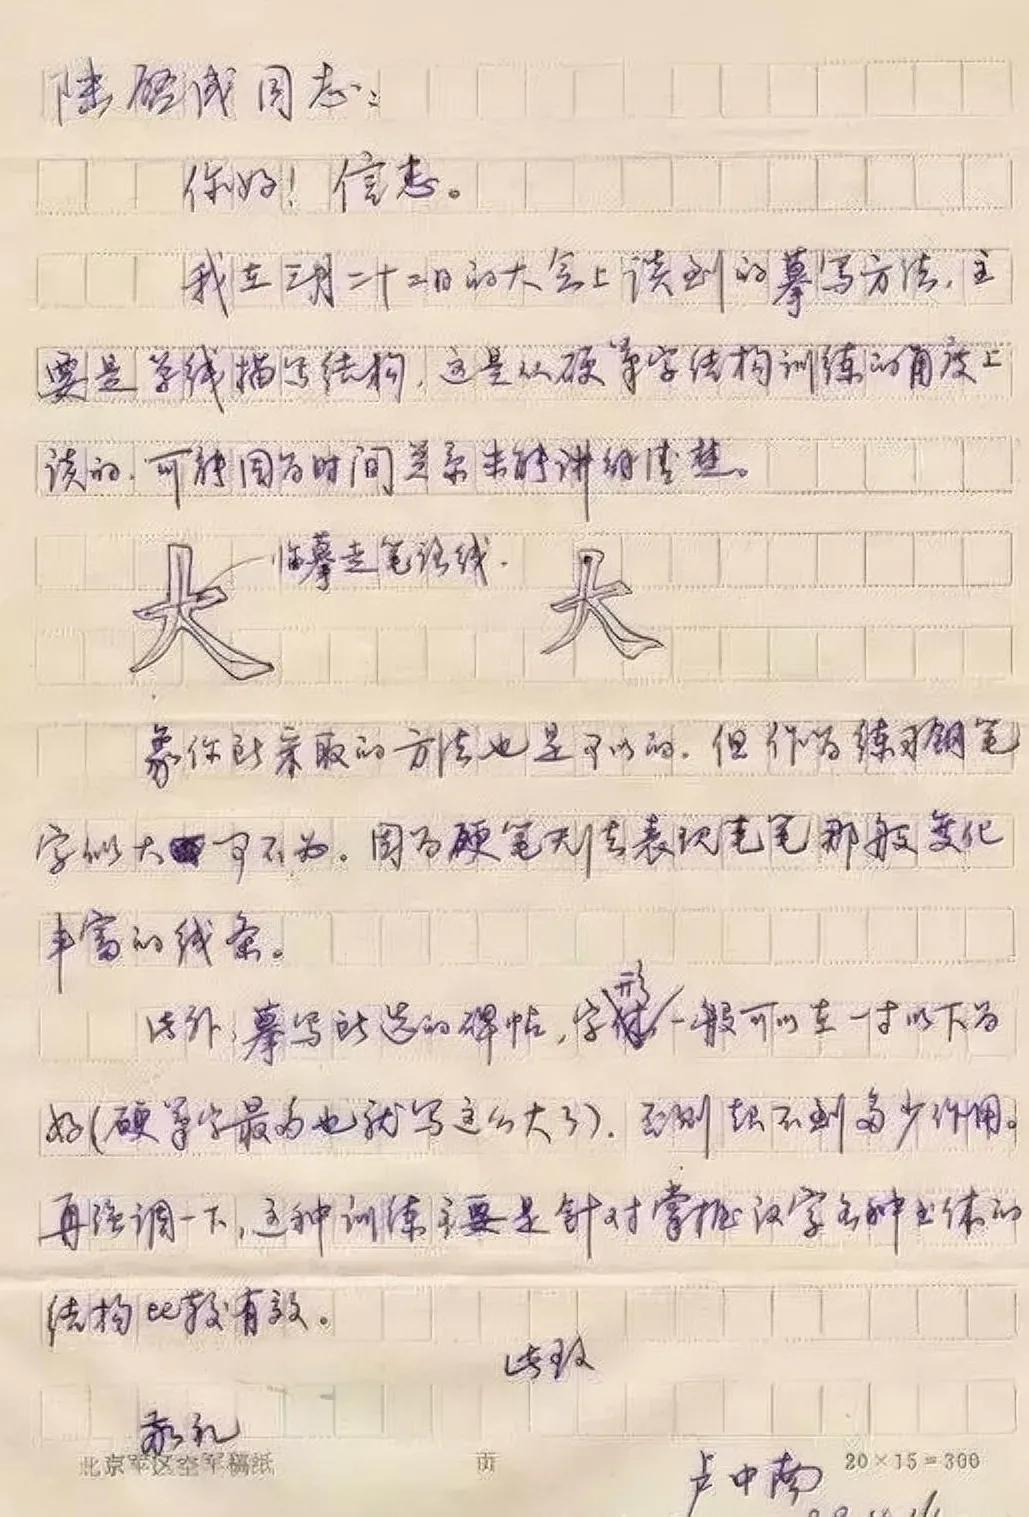 陆启成同志：
你好！信悉。
我在三月二十二日的大会上谈到的摹写方法，主
要是单线描写结构，这是从硬笔字结构训练的角度上
谈的，可能因为时间关系未能讲得清楚。
大 临摹走笔路线. 大
象你所采取的方法也是可以的，但作为练习钢笔
字似大可不为。因为硬笔无法表现毛笔那般变化
丰富的线条。
此外，摹写所选的碑帖，字形一般可以在一寸以下为
好(硬笔字最多也就写这么大了)，否则起不到多少作用。
再强调一下，这种训练主要是针对掌握汉字各种书体的
结构比较有效。
此致
敬礼
北京军区空军稿纸 页 20×15=300
卢中南